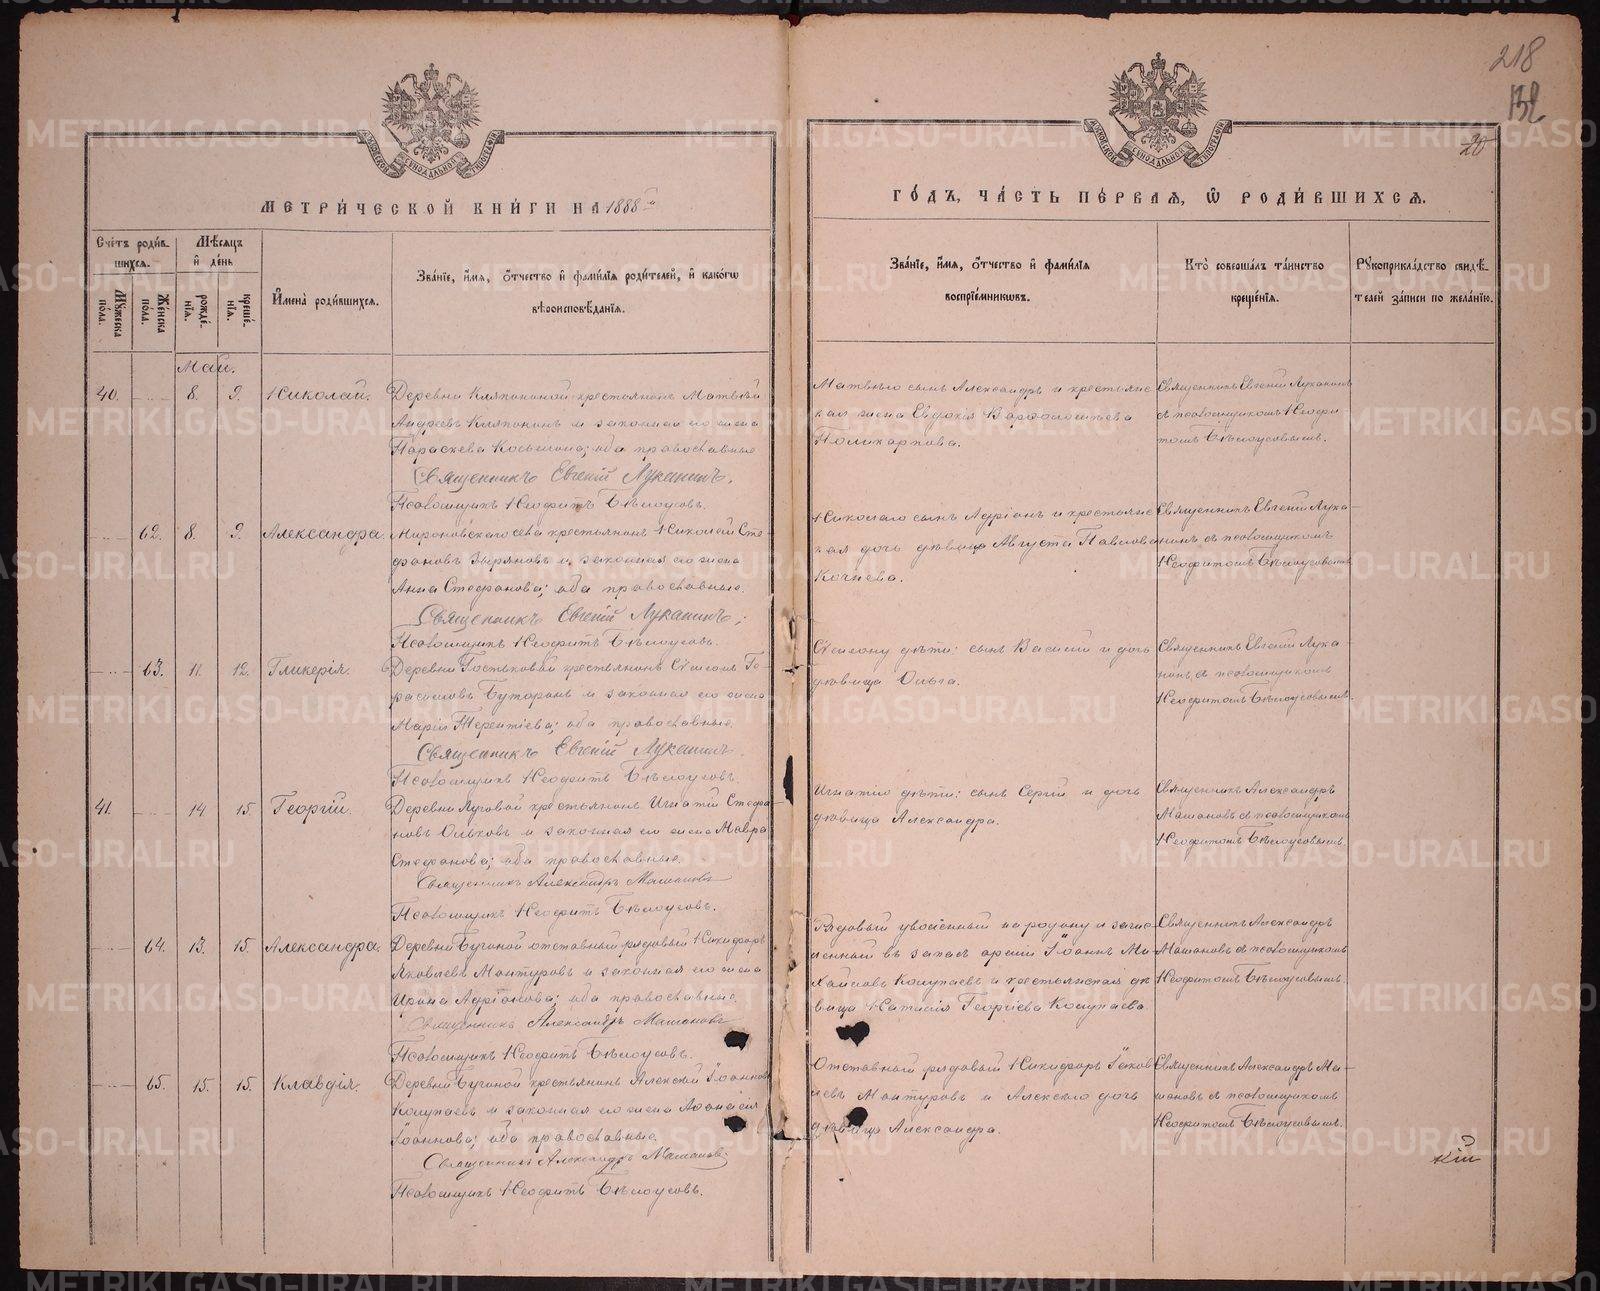 218
132
20
МЕТРИ́ЧЕСКОЙ КНИ́ГИ НА 1888й
ГО́ДЪ, ЧА́СТЬ ПЕ́РВАЯ, Ѿ РОДИ́ВШИХСЯ.
Сче́тъ роди́вшихся.
Мꙋ́жеска по́ла.
Же́нска по́ла.
Мѣ́сяцъ и҆ де́нь
рожде́нїя.
креще́нїя.
И҆мена̀ роди́вшихся.
Зва́нїе, и҆́мя, ѻ҆́тчество и҆ фами́лїя роди́телей, и҆ како́гѡ
вѣроисповѣ́данїя.
Зва́нїе, и҆́мя, ѻ҆́тчество и҆ фами́лїя
воспрїе́мникѡвъ.
Кто̀ соверша́лъ та́инство
креще́нїя.
Рꙋкоприкла́дство свидѣ́телей за́писи по жела́нїю.
Май.
40. 8. 9. Николай.
Деревни Кляпониной крестьянинъ Матвѣй
Андреевъ Кляпонинъ и законная его жена
Параскева Косьмина; оба православные.
Священникъ Евгеній Луканинъ.
Псаломщикъ Неофитъ Бѣлоусовъ.
Матвѣю сынъ Александръ и крестьянс
кая жена Евдокія Варѳоломѣева
Поликарпова.
Священникъ Евгеній Луканинъ
съ псаломщикомъ Неофи
томъ Бѣлоусовымъ.
62. 8. 9. Александра.
Мироновскаго села крестьянинъ Николай Сте
фановъ Зыряновъ и законная его жена
Анна Стефанова; оба православные.
Священникъ Евгеній Луканинъ;
Псаломщикъ Неофитъ Бѣлоусовъ.
Николаю сынъ Адріанъ и крестьянс
кая дочь дѣвица Августа Павлова
Кочнева.
Священникъ Евгеній Лука-
нинъ съ псаломщикомъ
Неофитомъ Бѣлоусовымъ
63. 11. 12. Гликерія.
Деревни Гостьковой крестьянинъ Симеонъ Ге
расимовъ Буторинъ и законная его жена
Марія Терентіева; оба православные.
Священникъ Евгеній Луканинъ.
Псаломщикъ Неофитъ Бѣлоусовъ.
Симеону дѣти: сынъ Василій и дочь
дѣвица Ольга.
Священникъ Евгеній Лука-
нинъ съ псаломщикомъ
Неофитомъ Бѣлоусовымъ
41. 14 15. Георгій.
Деревни Луговой крестьянинъ Игнатій Стефа-
новъ Ольковъ и законная его жена Мавра
Стефанова; оба православные.
Священникъ Александръ Машановъ
Псаломщикъ Неофитъ Бѣлоусовъ.
Игнатію дѣти: сынъ Сергій и дочь
дѣвица Александра.
Священникъ Александръ
Машановъ съ псаломщикомъ
Неофитомъ Бѣлоусовымъ.
64. 13. 15. Александра.
Деревни Бучиной отставный рядовый Никифоръ
Яковлевъ Мантуровъ и законная его жена
Ирина Адріанова; оба православные.
Священникъ Александръ Машановъ
Псаломщикъ Неофитъ Бѣлоусовъ.
Рядовый уволенный на родину и зачис
ленный въ запасъ арміи Іоаннъ Ми
хайловъ Колупаевъ и крестьянская дѣ
вица Наталія Георгіева Колупаева.
Священникъ Александръ
Машановъ съ псаломщикомъ
Неофитомъ Бѣлоусовымъ.
65. 15. 15. Клавдія.
Деревни Бучиной крестьянинъ Алексѣй Іоанновъ
Колупаевъ и законная его жена Аѳанасія
Іоаннова; оба православные.
Священникъ Александръ Машановъ
Псаломщикъ Неофитъ Бѣлоусовъ.
Отставный рядовый Никифоръ Іаков
левъ Мантуровъ и Алексѣю дочь
дѣвица Александра.
Священникъ Александръ Ма-
шановъ съ псаломщикомъ
Неофитомъ Бѣлоусовымъ.
кій
METRIKI.GASO-URAL.RU